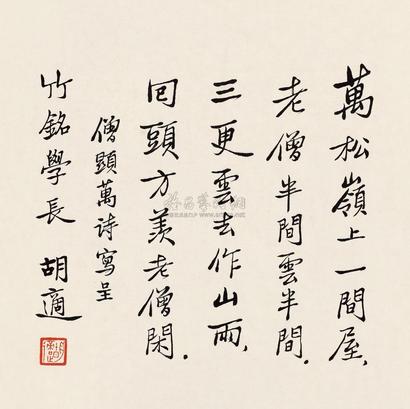 萬松嶺上一間屋、
老僧半間雲半間。
三更雲去作山雨、
回頭方羨老僧閑。
僧顯萬詩寫呈
竹銘學長 胡適